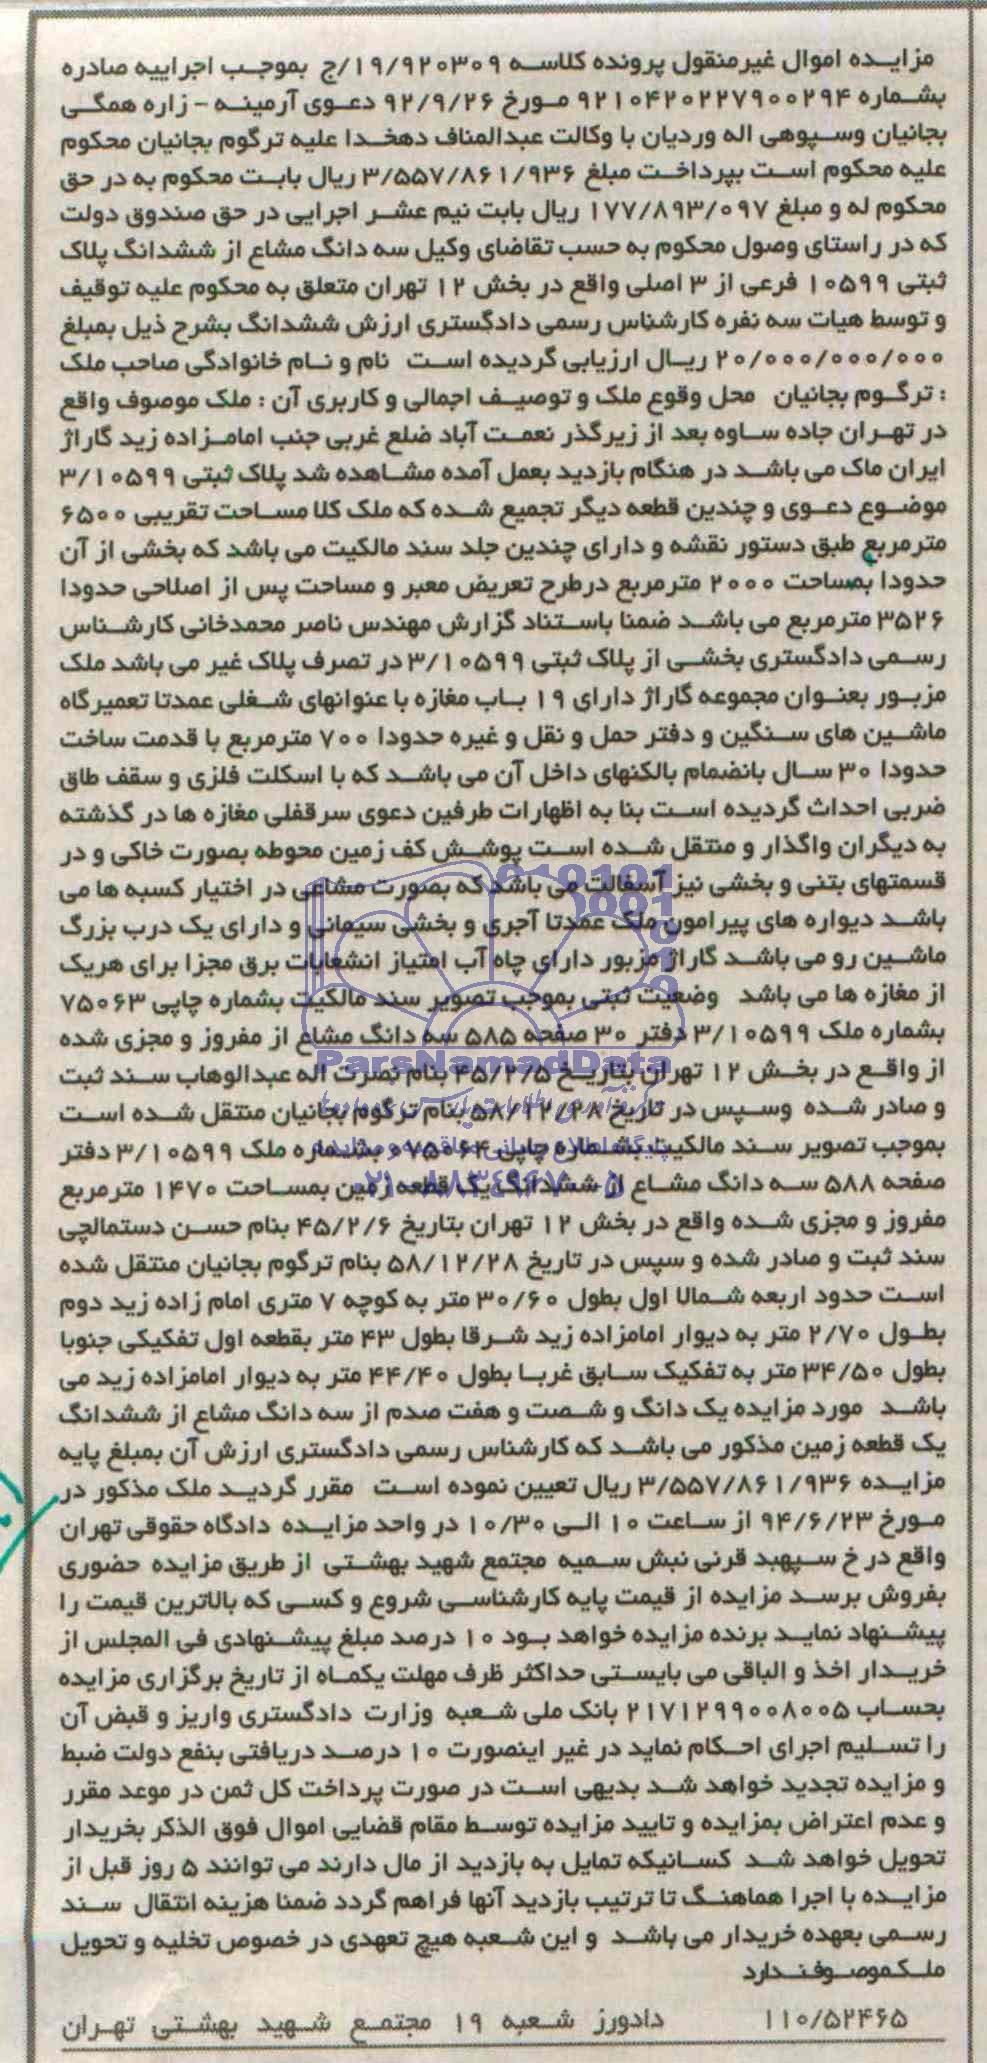 مزایده اموال غیرمنقول پرونده کلاسه ۱۹/۹۲۰۳۰۹/ج بموجب اجراییه صادره
بشماره ۹۲۱۰۴۲۰۲۲۷۹۰۰۲۹۴ مورخ ۹۲/۹/۲۶ دعوی آرمینه - زاره همگی
بجانیان وسپوهی اله وردیان با وکالت عبدالمناف دهخدا علیه ترگوم بجانیان محکوم
علیه محکوم است بپرداخت مبلغ ۳/۵۵۷/۸۶۱/۹۳۶ ریال بابت محکوم به در حق
محکوم له و مبلغ ۱۷۷/۸۹۳/۰۹۷ ریال بابت نیم عشر اجرایی در حق صندوق دولت
که در راستای وصول محکوم به حسب تقاضای وکیل سه دانگ مشاع از ششدانگ پلاک
ثبتی ۱۰۵۹۹ فرعی از ۳ اصلی واقع در بخش ۱۲ تهران متعلق به محکوم علیه توقیف
و توسط هیات سه نفره کارشناس رسمی دادگستری ارزش ششدانگ بشرح ذیل بمبلغ
۲۰/۰۰۰/۰۰۰/۰۰۰ ریال ارزیابی گردیده است نام و نام خانوادگی صاحب ملک
: ترگوم بجانیان محل وقوع ملک و توصیف اجمالی و کاربری آن : ملک موصوف واقع
در تهران جاده ساوه بعد از زیرگذر نعمت آباد ضلع غربی جنب امامزاده زید گاراژ
ایران ماک می باشد در هنگام بازدید بعمل آمده مشاهده شد پلاک ثبتی ۳/۱۰۵۹۹
موضوع دعوی و چندین قطعه دیگر تجمیع شده که ملک کلا مساحت تقریبی ۶۵۰۰
مترمربع طبق دستور نقشه و دارای چندین جلد سند مالکیت می باشد که بخشی از آن
حدودا بمساحت ۲۰۰۰ مترمربع درطرح تعریض معبر و مساحت پس از اصلاحی حدودا
۳۵۲۶ مترمربع می باشد ضمنا باستناد گزارش مهندس ناصر محمدخانی کارشناس
رسمی دادگستری بخشی از پلاک ثبتی ۳/۱۰۵۹۹ در تصرف پلاک غیر می باشد ملک
مزبور بعنوان مجموعه گاراژ دارای ۱۹ باب مغازه با عنوانهای شغلی عمدتا تعمیرگاه
ماشین های سنگین و دفتر حمل و نقل و غیره حدودا ۷۰۰ مترمربع با قدمت ساخت
حدودا ۳۰ سال بانضمام بالکنهای داخل آن می باشد که با اسکلت فلزی و سقف طاق
ضربی احداث گردیده است بنا به اظهارات طرفین دعوی سرقفلی مغازه ها در گذشته
به دیگران واگذار و منتقل شده است پوشش کف زمین محوطه بصورت خاکی و در
قسمتهای بتنی و بخشی نیز آسفالت می باشد که بصورت مشاعی در اختیار کسبه ها می
باشد دیواره های پیرامون ملک عمدتا آجری و بخشی سیمانی و دارای یک درب بزرگ
ماشین رو می باشد گاراژ مزبور دارای چاه آب امتیاز انشعابات برق مجزا برای هریک
از مغازه ها می باشد وضعیت ثبتی بموجب تصویر سند مالکیت بشماره چاپی ۷۵۰۶۳
بشماره ملک ۳/۱۰۵۹۹ دفتر ۳۰ صفحه ۵۸۵ سه دانگ مشاع از مفروز و مجزی شده
ParsNamadData
از واقع در بخش ۱۲ تهران بتاریخ ۴۵/۲/۵ بنام نصرت اله عبدالوهاب سند ثبت
و صادر شده وسپس در تاریخ ۵۸/۱۲/۲۸ بنام ترگوم بجانیان منتقل شده است
بموجب تصویر سند مالکیت بشماره چاپی ۰۷۵۰۶۴ بشماره ملک ۳/۱۰۵۹۹ دفتر
صفحه ۵۸۸ سه دانگ مشاع از ششدانگ یک قطعه زمین بمساحت ۱۴۷۰ مترمربع
مفروز و مجزی شده واقع در بخش ۱۲ تهران بتاریخ ۴۵/۲/۶ بنام حسن دستمالچی
سند ثبت و صادر شده و سپس در تاریخ ۵۸/۱۲/۲۸ بنام ترگوم بجانیان منتقل شده
است حدود اربعه شمالا اول بطول ۳۰/۶۰ متر به کوچه ۷ متری امام زاده زید دوم
بطول ۲/۷۰ متر به دیوار امامزاده زید شرقا بطول ۴۳ متر بقطعه اول تفکیکی جنوبا
بطول ۳۴/۵۰ متر به تفکیک سابق غربا بطول ۴۴/۴۰ متر به دیوار امامزاده زید می
باشد مورد مزایده یک دانگ و شصت و هفت صدم از سه دانگ مشاع از ششدانگ
یک قطعه زمین مذکور می باشد که کارشناس رسمی دادگستری ارزش آن بمبلغ پایه
مزایده ۳/۵۵۷/۸۶۱/۹۳۶ ریال تعیین نموده است مقرر گردید ملک مذکور در
مورخ ۹۴/۶/۲۳ از ساعت ۱۰ الی ۱۰/۳۰ در واحد مزایده دادگاه حقوقی تهران
واقع در خ سپهبد قرنی نبش سمیه مجتمع شهید بهشتی از طریق مزایده حضوری
بفروش برسد مزایده از قیمت پایه کارشناسی شروع و کسی که بالاترین قیمت را
پیشنهاد نماید برنده مزایده خواهد بود ۱۰ درصد مبلغ پیشنهادی فی المجلس از
خریدار اخذ و الباقی می بایستی حداکثر ظرف مهلت یکماه از تاریخ برگزاری مزایده
بحساب ۲۱۷۱۲۹۹۰۰۸۰۰۵ بانک ملی شعبه وزارت دادگستری واریز و قبض آن
را تسلیم اجرای احکام نماید در غیر اینصورت ۱۰ درصد دریافتی بنفع دولت ضبط
و مزایده تجدید خواهد شد بدیهی است در صورت پرداخت کل ثمن در موعد مقرر
و عدم اعتراض بمزایده و تایید مزایده توسط مقام قضایی اموال فوق الذکر بخریدار
تحویل خواهد شد کسانیکه تمایل به بازدید از مال دارند می توانند ۵ روز قبل از
مزایده با اجرا هماهنگ تا ترتیب بازدید آنها فراهم گردد ضمنا هزینه انتقال سند
رسمی بعهده خریدار می باشد و این شعبه هیچ تعهدی در خصوص تخلیه و تحویل
ملک موصوف ندارد
۱۱۰/۵۲۴۶۵ دادورز شعبه ۱۹ مجتمع شهید بهشتی تهران